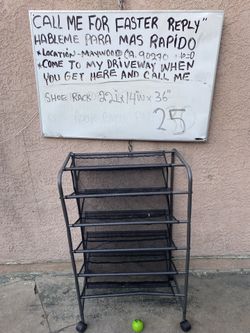 CALL ME FOR FASTER REPLY"
HABLEME PARA MAS RAPIDO
*LOCATION-MAYWOOD CA. 90270
*COME TO MY DRIVEWAY WHEN
YOU GET HERE AND CALL ME
SHOE RACK 22inx14inx36"
25